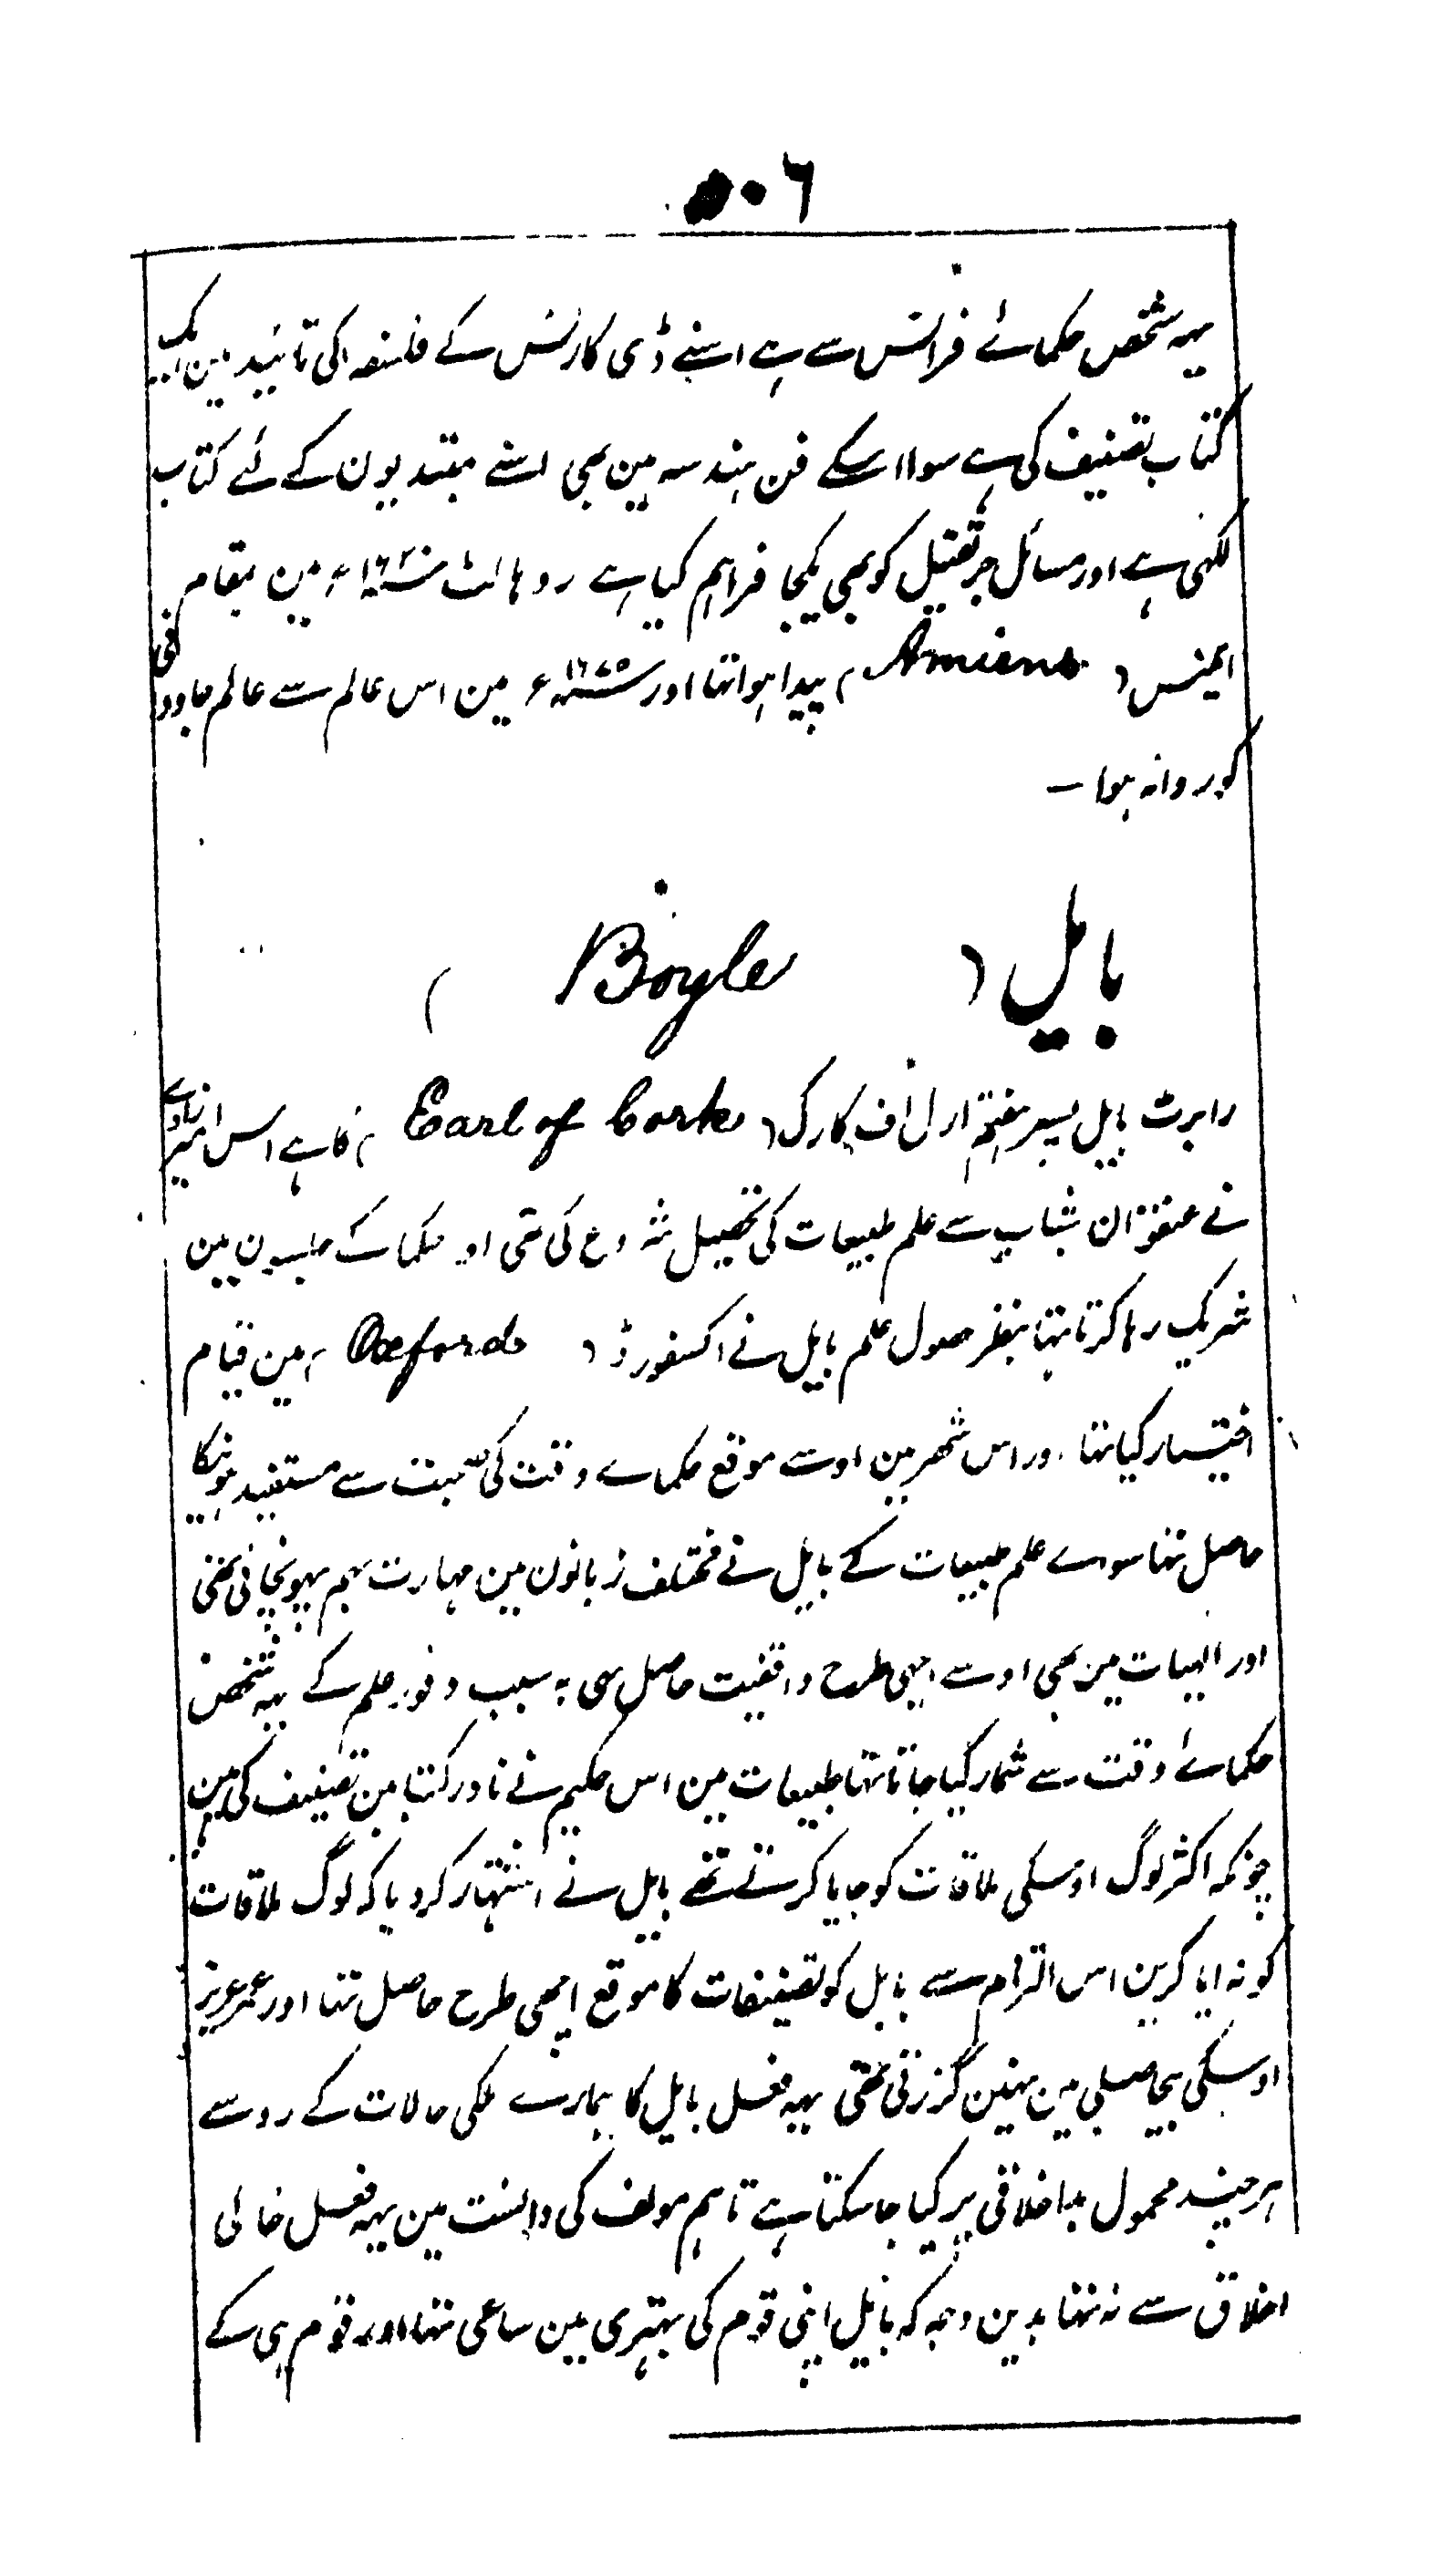 ۵۰۶
یہہ شخص حکمائے فرانس سے ہے اسنے ڈی کارٹس کے فلسفہ کی تائید مین ایک
کتاب تصنیف کی ہے سوا اسکے فن ہندسہ مین بھی اسنے مبتدیون کے لئے کتاب
لکھی ہے اور مسائل جر ثقیل کو بھی یکجا فراہم کیا ہے روہالٹ سنہ ۱۶۲۰ء مین بمقام
ایمنس ( Amiens ) پیدا ہوا تھا اور سنہ ۱۶۷۵ء مین اس عالم سے عالم جاودانی
کو روانہ ہوا —
بایل ( Boyle )
رابرٹ بایل پسر ہفتم ارل اف کارک ( Earl of Cork ) کا ہے اس امیرزادے
نے عنفوان شباب سے علم طبیعات کی تحصیل شروع کی تھی اور حکما کے جلسون مین
شریک رہا کرتا تہا بنظر حصول علم بایل نے اکسفورڈ ( Oxford ) مین قیام
اختیار کیا تھا اور اس شھر مین اوسے موقع حکماے وقت کی صحبت سے مستفید ہونیکا
حاصل تھا سواے علم طبیعات کے بایل نے مختلف زبانون مین مہارت بہم پہونچائی تھی
اور الہیات مین بھی اوسے اچھی طرح واقفیت حاصل تھی بہ سبب وفور علم کے یہہ شخص
حکمائے وقت سے شمار کیا جاتا تھا طبیعات مین اس حکیم نے نادر کتابین تصنیف کی ہین
چونکہ اکثر لوگ اوسکی ملاقات کو جایا کرتے تھے بایل نے اشتہار کردیا کہ لوگ ملاقات
کو نہ ایا کرین اس التزام سے بایل کو تصنیفات کا موقع اچھی طرح حاصل تھا اور عمر عزیز
اوسکی بیحاصلی مین نہین گزرتی تھی یہہ فعل بایل کا ہمارے ملکی حالات کے رو سے
ہر چند محمول بداخلاقی پر کیا جا سکتا ہے تاہم مولف کی دانست مین یہہ فعل خالی
اخلاق سے نہ تھا بدین وجہ کہ بایل اپنی قوم کی بہتری مین ساعی تھا اور قوم ہی کے